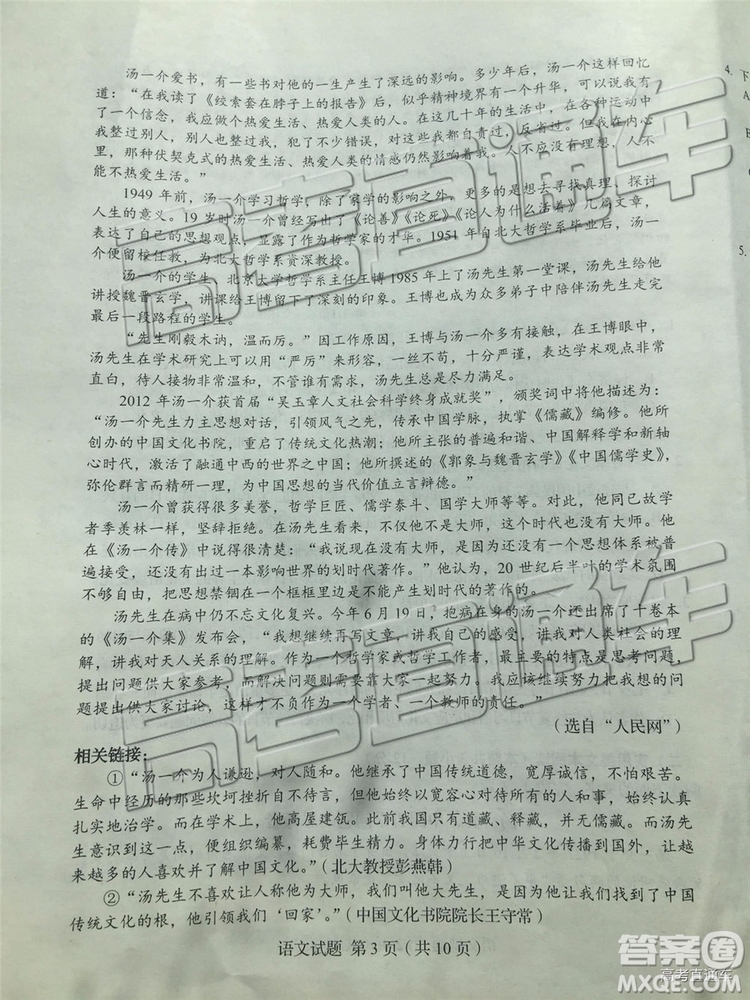 汤一介爱书，有一些书对他的一生产生了深远的影响。多少年后，汤一介这样回忆
道：“在我读了《绞索套在脖子上的报告》后，似乎精神境界有一个升华，可以说我有
了一个信念，我应做个热爱生活、热爱人类的人。在这几十年的生活中，在各种运动中
我整过别人，别人也整过我，犯了不少错误，对这些我都自责过，反省过。但我在内心
里，那种伏契克式的热爱生活、热爱人类的情感仍然影响着我。人不应没有理想，人不
能不热爱生活。”
1949 年前，汤一介学习哲学，除了家学的影响之外，更多的是想去寻找真理、探讨
人生的意义。19 岁时汤一介曾经写出了《论善》《论死》《论人为什么活着》几篇文章，
表达了自己的思想观点，显露了作为哲学家的才华。1951 年自北大哲学系毕业后，汤一
介便留校任教，为北大哲学系资深教授。
汤一介的学生、北京大学哲学系主任王博 1985 年上了汤先生第一堂课，汤先生给他
讲授魏晋玄学，讲课给王博留下了深刻的印象。王博也成为众多弟子中陪伴汤先生走完
最后一段路程的学生。
“先生刚毅木讷，温而厉。”因工作原因，王博与汤一介多有接触，在王博眼中，
汤先生在学术研究上可以用“严厉”来形容，一丝不苟，十分严谨，表达学术观点非常
直白，待人接物非常温和，不管谁有需求，汤先生总是尽力满足。
2012 年汤一介获首届“吴玉章人文社会科学终身成就奖”，颁奖词中将他描述为：
“汤一介先生力主思想对话，引领风气之先，传承中国学脉，执掌《儒藏》编修。他所
创办的中国文化书院，重启了传统文化热潮；他所主张的普遍和谐、中国解释学和新轴
心时代，激活了融通中西的世界之中国；他所撰述的《郭象与魏晋玄学》《中国儒学史》，
弥伦群言而精研一理，为中国思想的当代价值立言辩德。”
汤一介曾获得很多美誉，哲学巨匠、儒学泰斗、国学大师等等。对此，他同已故学
者季羡林一样，坚辞拒绝。在汤先生看来，不仅他不是大师，这个时代也没有大师。他
在《汤一介传》中说得很清楚：“我说现在没有大师，是因为还没有一个思想系统被普
遍接受，还没有出过一本影响世界的划时代著作。”他认为，20 世纪后半叶的学术氛围
不够自由，把思想禁锢在一个框框里边是不能产生划时代的著作的。
汤先生在病中仍不忘文化复兴。今年 6 月 19 日，抱病在身的汤一介还出席了十卷本
的《汤一介集》发布会，“我想继续再写文章，讲我自己的感受，讲我对人类社会的理
解，讲我对天人关系的理解。作为一个哲学家或哲学工作者，最主要的特点是思考问题，
提出问题供大家参考，而解决问题则需要靠大家一起努力。我应该继续努力把我想的问
题提出供大家讨论，这样才不负作为一个学者、一个教师的责任。”
（选自“人民网”）
相关链接：
①“汤一介为人谦逊，对人随和。他继承了中国传统道德，宽厚诚信，不怕艰苦。
生命中经历的那些坎坷挫折自不待言，但他始终以宽容心对待所有的人和事，始终认真
扎实地治学。而在学术上，他高屋建瓴。此前我国只有道藏、释藏，并无儒藏。而汤先
生意识到这一点，便组织编纂，耗费毕生精力。身体力行把中华文化传播到国外，让越
来越多的人喜欢并了解中国文化。”（北大教授彭燕韩）
②“汤先生不喜欢让人称他为大师，我们叫他大先生，就是因为他让我们找到了中国
传统文化的根，他引领我们‘回家’。”（中国文化书院院长王守常）
语文试题 第 3 页（共 10 页）
4. 下
A
5.
高考直通车
高考直通车
高考直通车
答案圈
MXQE.COM
高考直通车